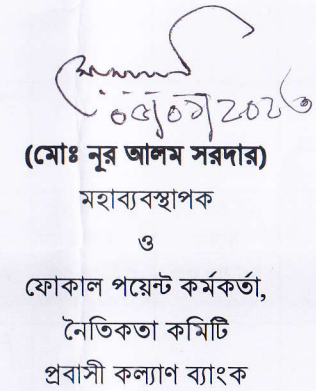 ০৫/০১/২০২৬
(মোঃ নূর আলম সরদার)
মহাব্যবস্থাপক
ও
ফোকাল পয়েন্ট কর্মকর্তা,
নৈতিকতা কমিটি
প্রবাসী কল্যাণ ব্যাংক